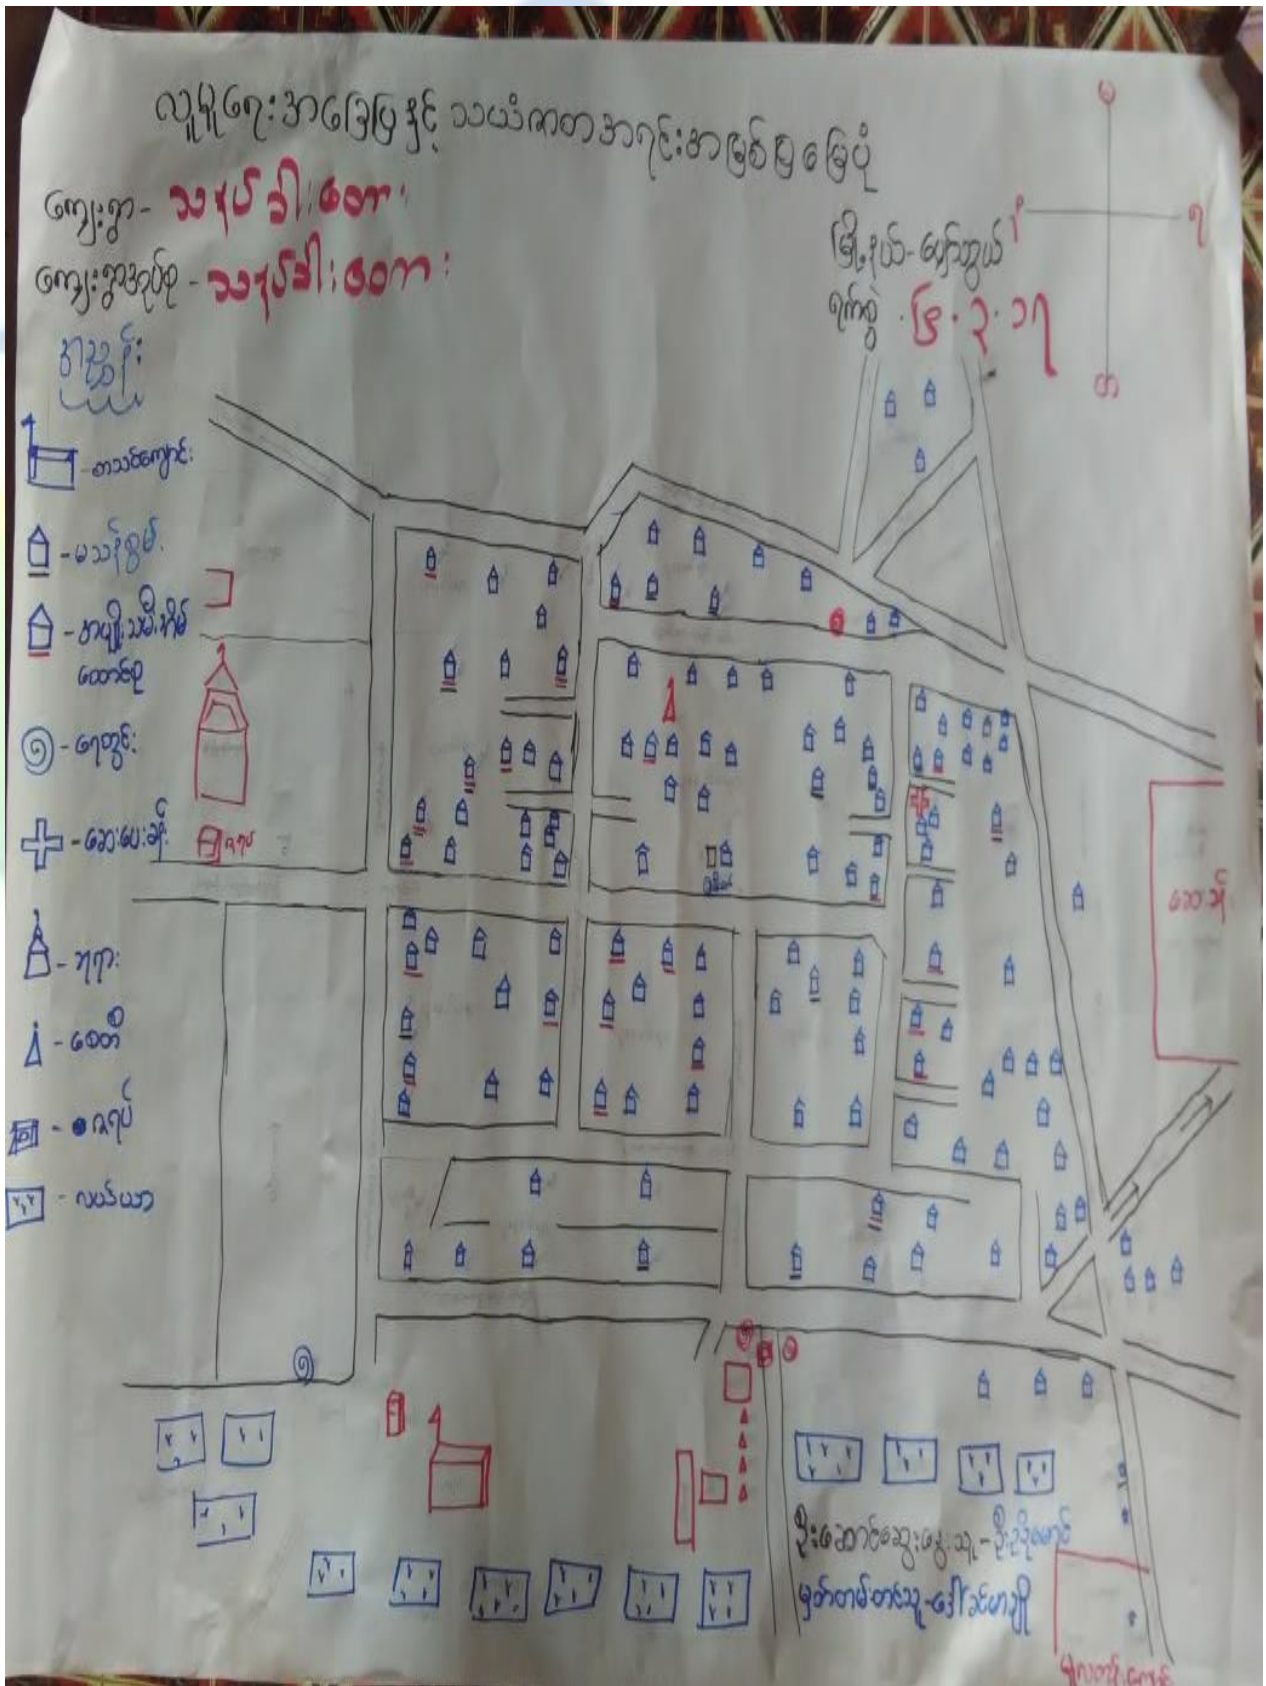 လူမှုရေးအခြေပြနှင့် သယံဇာတအရင်းအမြစ်ပြမြေပုံ
ကျေးရွာ - သနပ်ခါးတော
ကျေးရွာအုပ်စု - သနပ်ခါးတော
မြို့နယ် - ပျော်ဘွယ်
ရက်စွဲ - ၆.၃.၁၇
မ
ရ
တ
အညွှန်း
- စာသင်ကျောင်း
- မသန်စွမ်း
- အမျိုးသမီးအိမ်
ထောင်စု
- ရေတွင်း
- ဆေးပေးခန်း
- ဘုရား
- စေတီ
- ဇရပ်
- လယ်ယာ
ဇရပ်
ဆေးရုံ
ဦးဆောင်ဆွေးနွေးသူ - ဦးညိုမောင်
မှတ်တမ်းတင်သူ - ဒေါ်ခင်မာချို